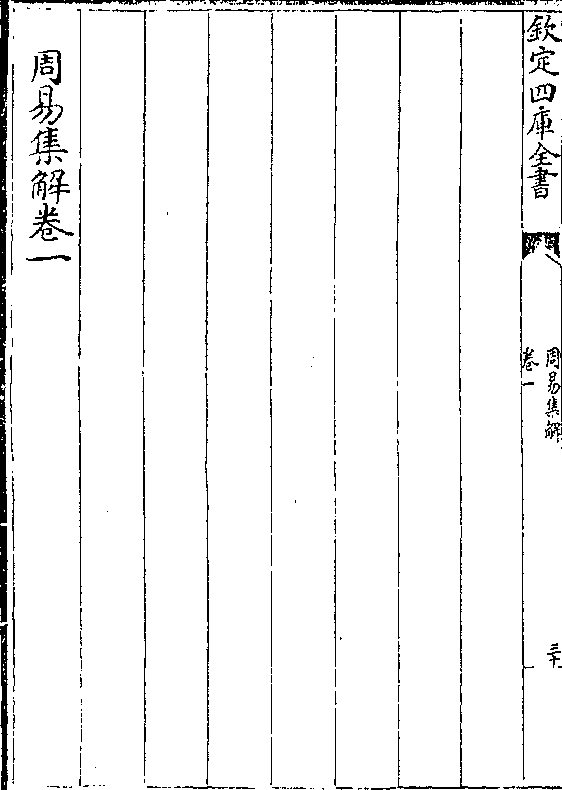 欽定四庫全書
周易集解
卷一
三十
周易集解卷一